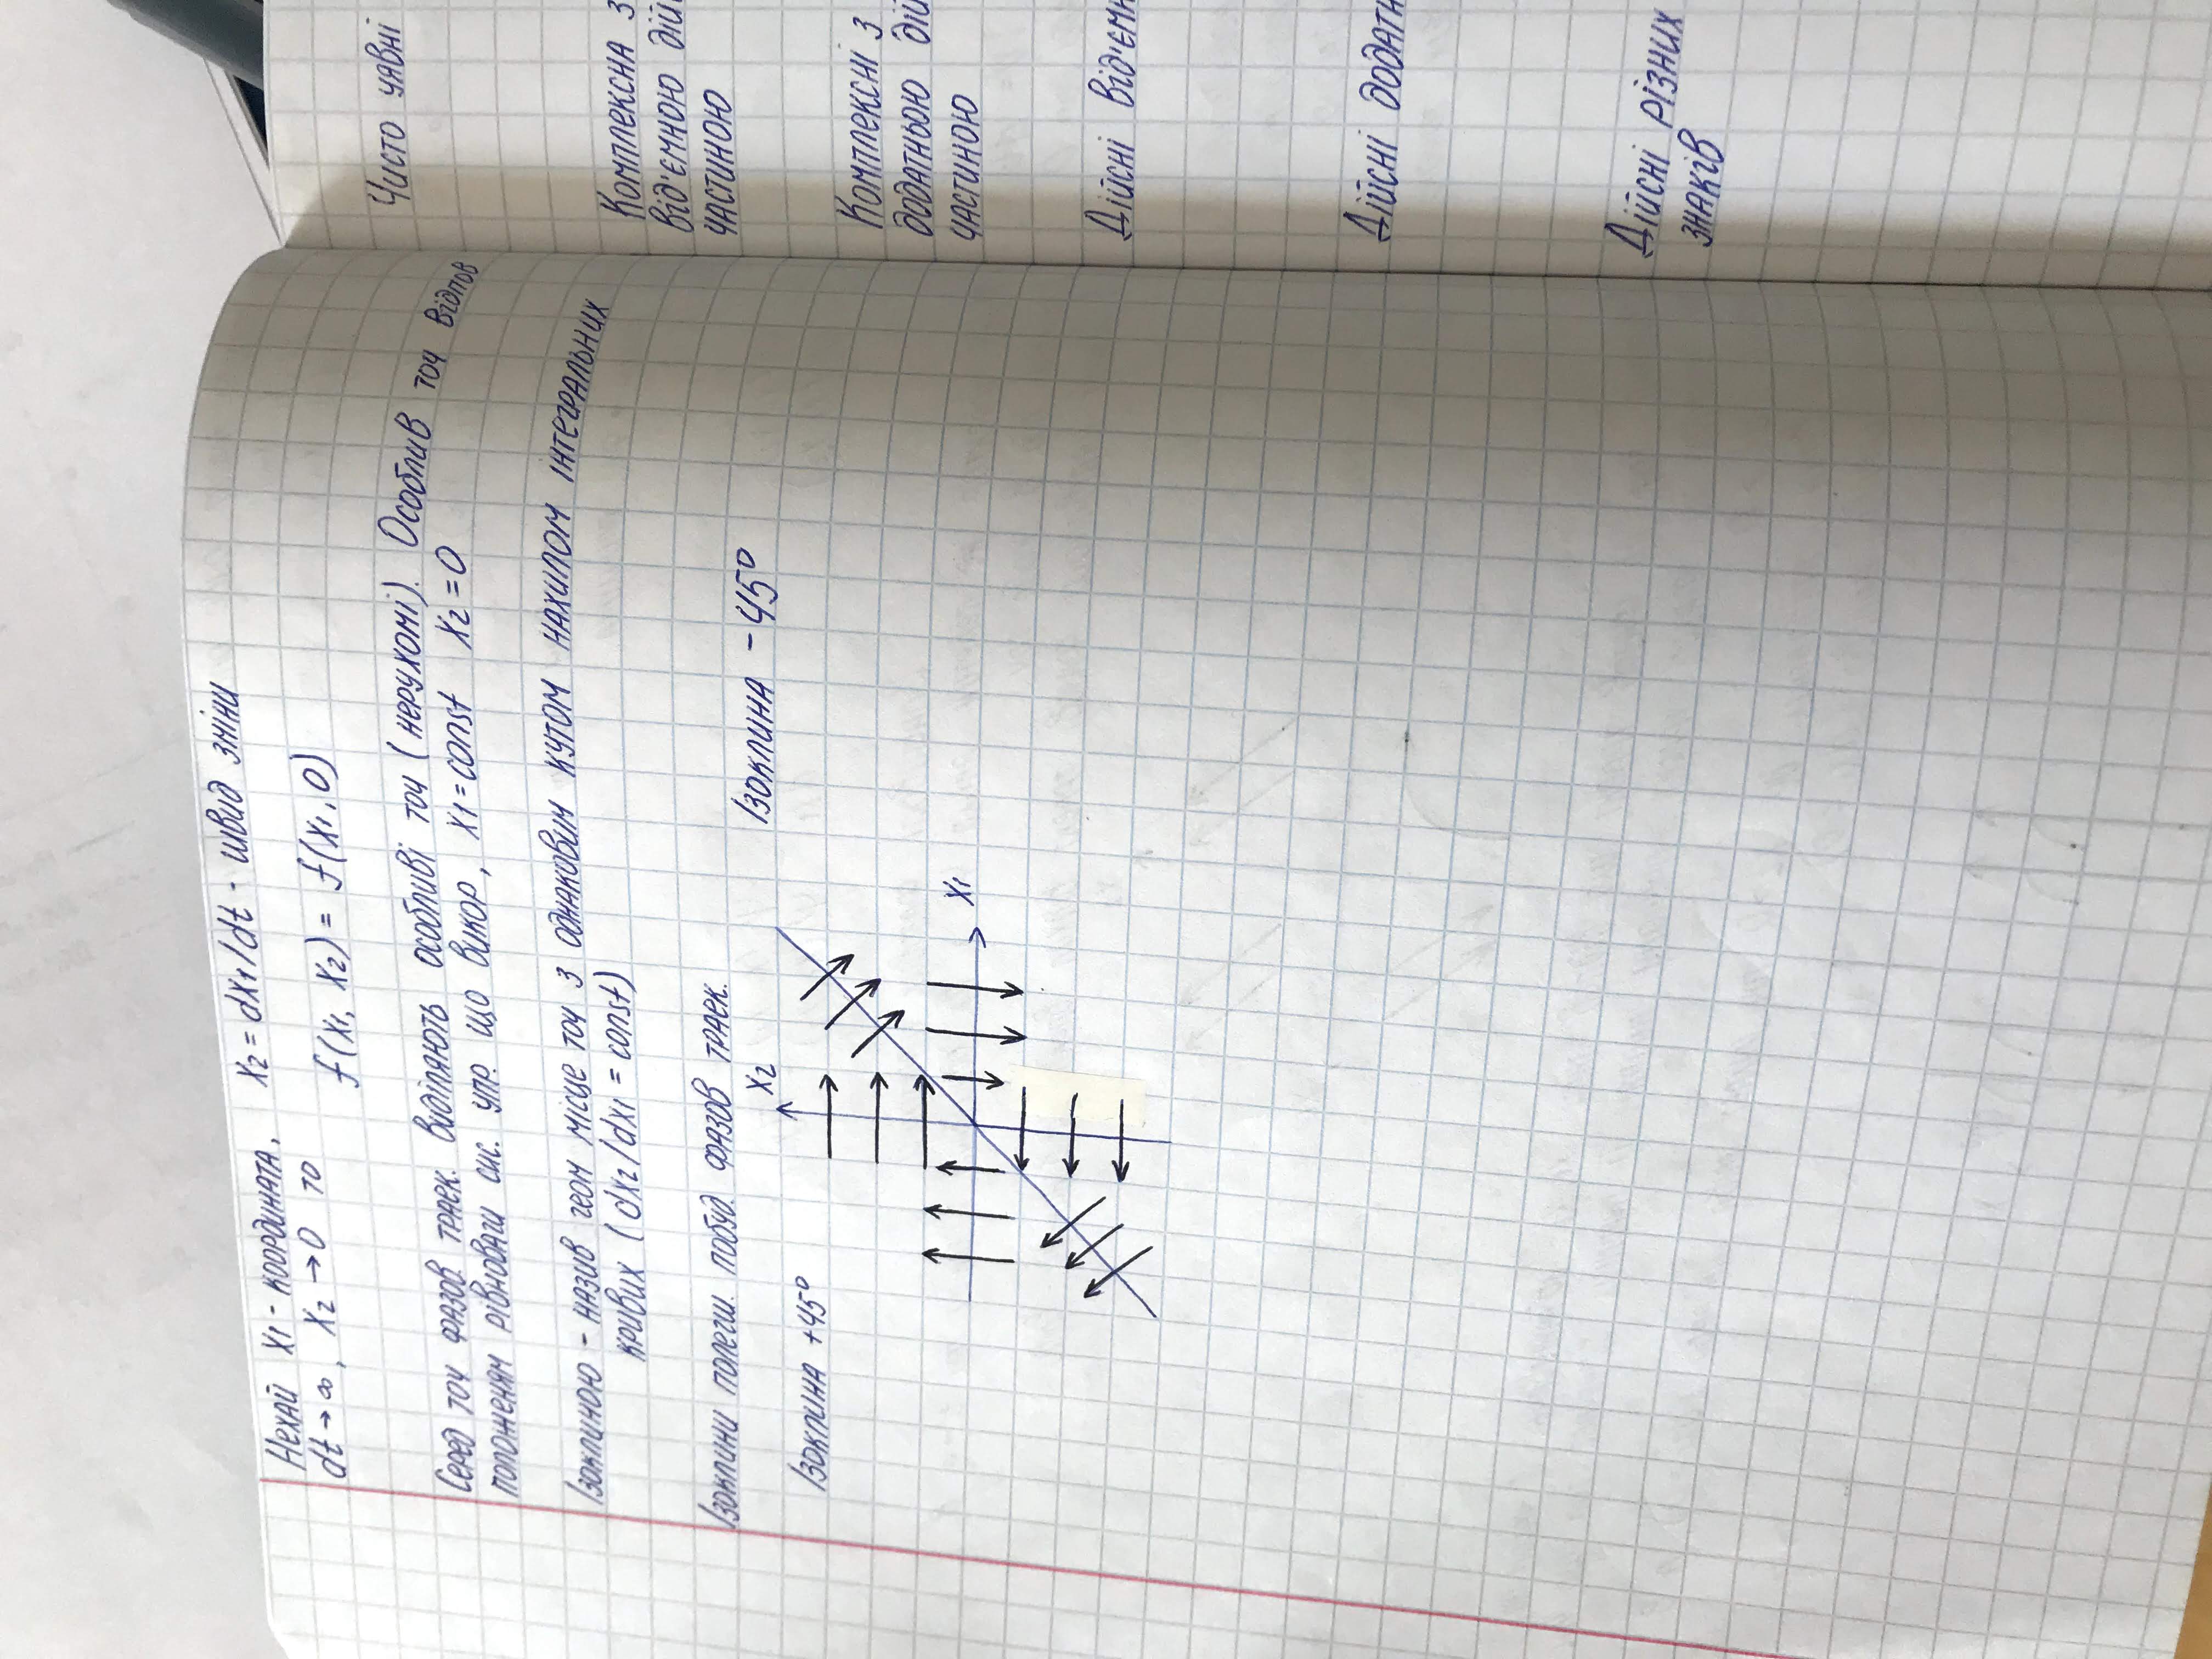 Нехай x1 - координата, x2 = dx1/dt - швид зміни
dt → ∞, x2 → 0 то
f(x1, x2) = f(x1, 0)
Серед точ фазов. траек. виділяють особливі точ (нерухомі). Особлив точ відпов
положеням рівноваги сис. упр. що викор, x1 = const x2 = 0
Ізоклиною - назив геом місце точ з однаковим кутом нахилом інтегральних
кривих (dx2/dx1 = const)
Ізоклини полегш. побуд. фазов траек.
Ізоклина +45°
x2
Ізоклина -45°
x1
Чисто уявні
Комплексна з
від'ємною дій
частиною
Комплексні з
додатньою дій
частиною
Дійсні від'ємн
Дійсні додатн
Дійсні різних
знаків